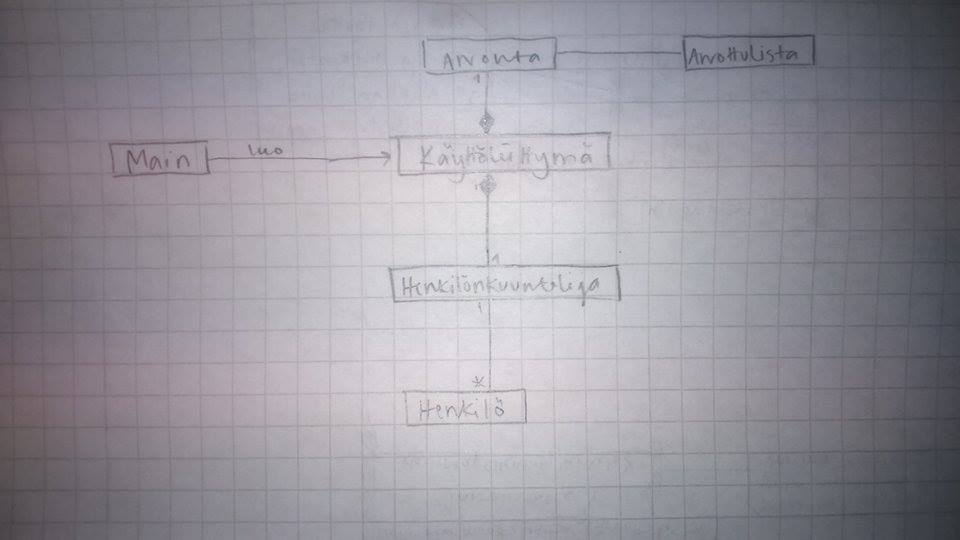 Arvonta
Arvottulista
1
Main
luo
Käyttöliittymä
1
1
Henkilönkuuntelija
1
*
Henkilö